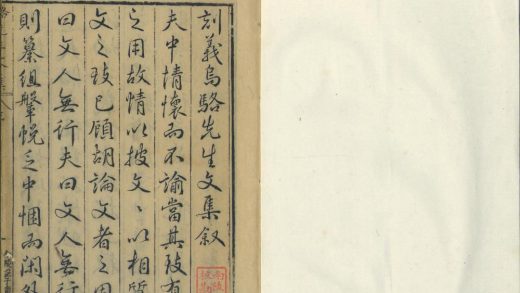 刻義烏駱先生文集叙
夫中情懷而不諭當其致有
之用故情以披文〻以相質
文之致已顧胡論文者之口
曰文人無行夫曰文人無行
則纂組鞶帨之中悃而闲外